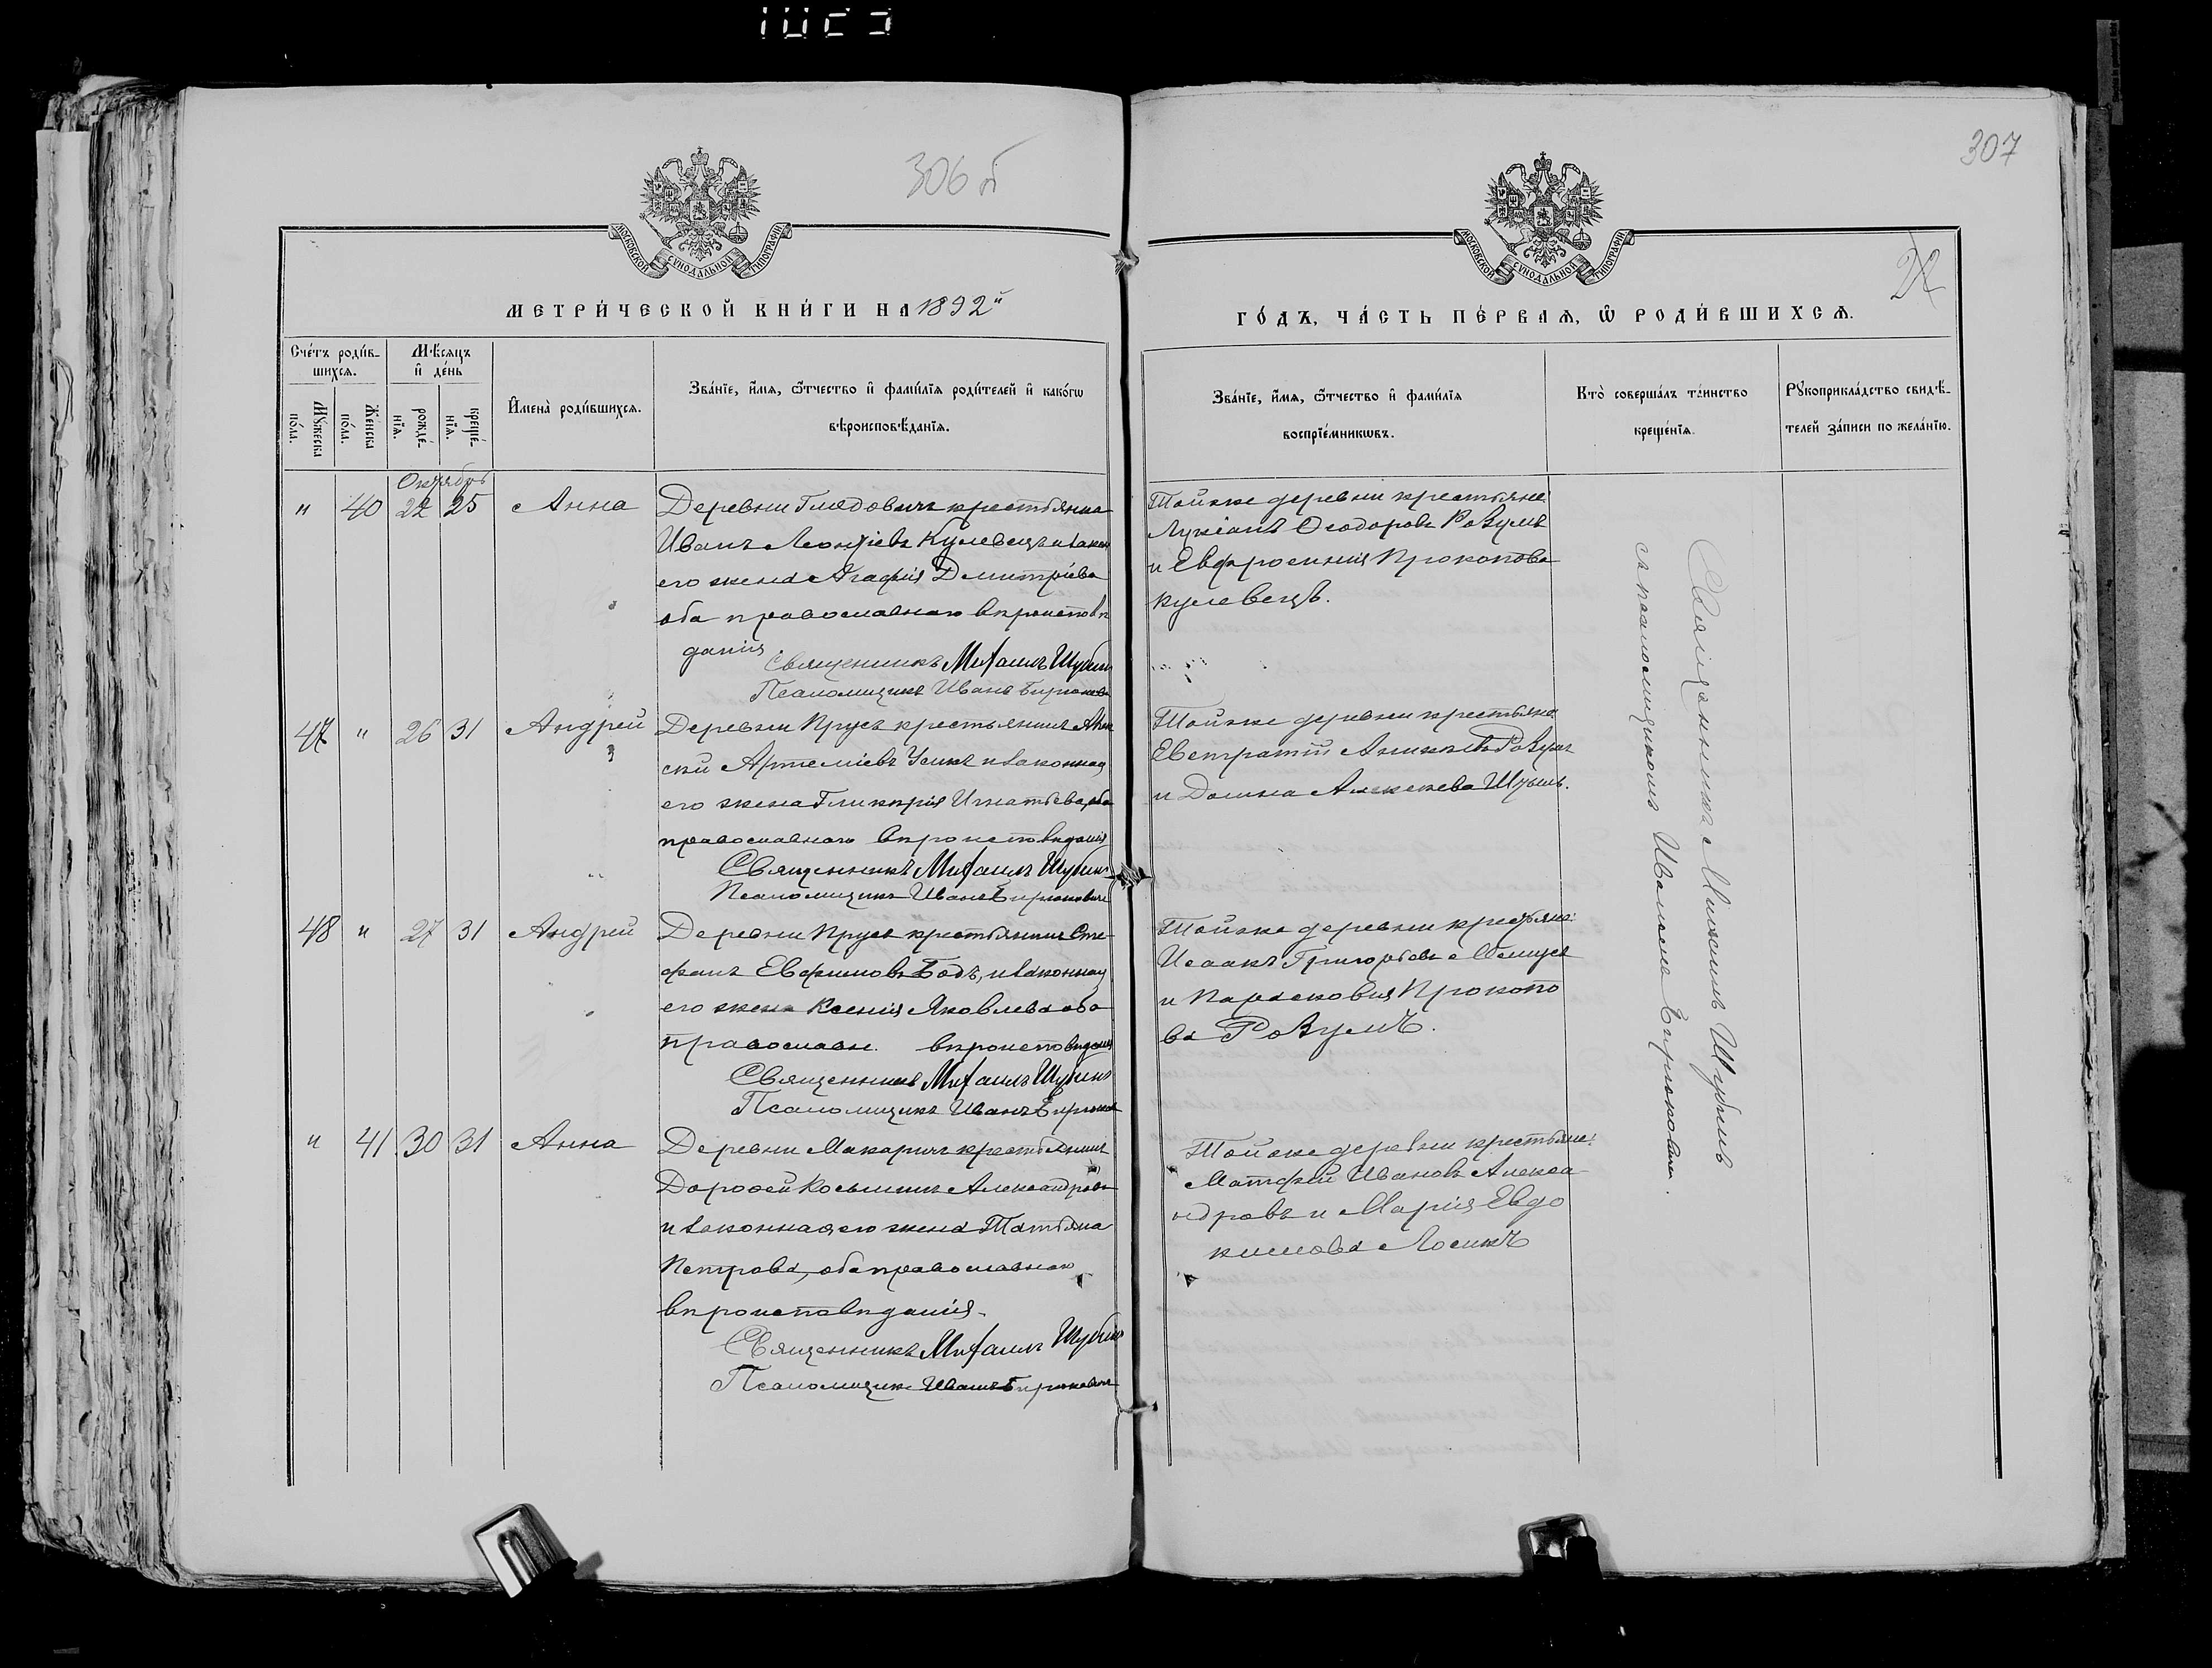 306 б
307
22
МОСКОВСКОЙ СѴНОДАЛЬНОЙ ТИПОГРАФІИ
МОСКОВСКОЙ СѴНОДАЛЬНОЙ ТИПОГРАФІИ
МЕТРИ́ЧЕСКОЙ КНИ́ГИ НА 1892й
ГО́ДЪ, ЧА́СТЬ ПЕ́РВАѦ, Ѡ҆ РОДИ́ВШИХСѦ.
Сче́тъ роди́в-
шихсѧ.
Мꙋ́жеска
по́ла.
Же́нска
по́ла.
Мѣ́сяцъ
и҆ де́нь
рожде́-
нїѧ.
креще́-
нїѧ.
И҆мена̀ роди́вшихсѧ.
Зва́нїе, и҆́мѧ, ѻ҆́тчество и҆ фами́лїѧ роди́телей и҆ како́гѡ
вѣроисповѣ́данїѧ.
Зва́нїе, и҆́мѧ, ѻ҆́тчество и҆ фами́лїѧ
воспрїе́мникѡвъ.
Кто̀ соверша́лъ та́инство
креще́нїѧ.
Рꙋкоприкла́дство свидѣ́-
телей за́писи по жела́нїю.
Октябрь
" 40 22 25 Анна
Деревни Глядовичъ крестьянинъ
Иванъ Леонтіевъ Кулевецъ и закон
его жена Агафія Димитріева
оба православнаго вѣроисповѣ
данія
Священникъ Михаилъ Шубинъ
Псаломщикъ Иванъ Бирюкович
Тойже деревни крестьяне:
Лукіанъ Ѳеодоровъ Розумъ
и Евфросинія Прокопова
Кулевецъ.
47 " 26 31 Андрей
Деревни Прусъ крестьянинъ
Артеміевъ Усикъ и законная
его жена Гликерія Игнатьева, оба
православнаго вѣроисповѣданія
Священникъ Михаилъ Шубинъ
Псаломщикъ Иванъ Бирюковичъ
Тойже деревни крестьяне:
Евстратій Розумъ
и Домна Алексеева
48 " 27 31 Андрей
Деревни Прусъ крестьянинъ Сте-
фанъ Евфимовъ и законная
его жена Ксенія Яковлева оба
православн. вѣроисповѣданія
Священникъ Михаилъ Шубинъ
Псаломщикъ Иванъ Бирюкович
Тойже деревни крестьяне:
Исаакъ Григорьевъ
и Парасковія Прокопо
ва Розумъ.
" 41 30 31 Анна
Деревни Макаричъ крестьянинъ
Дорофей Косьминъ Александровъ
и законная его жена Татьяна
Петрова, оба православнаго
вѣроисповѣданія.
Священникъ Михаилъ Шубинъ
Псаломщикъ Иванъ Бирюковичъ
Тойже деревни крестьяне:
Матфей Ивановъ Алекса-
ндровъ и Марія Евдо
кимова Лосикъ
Священникъ Михаилъ Шубинъ
съ псаломщикомъ Иваномъ Бирюковичъ.